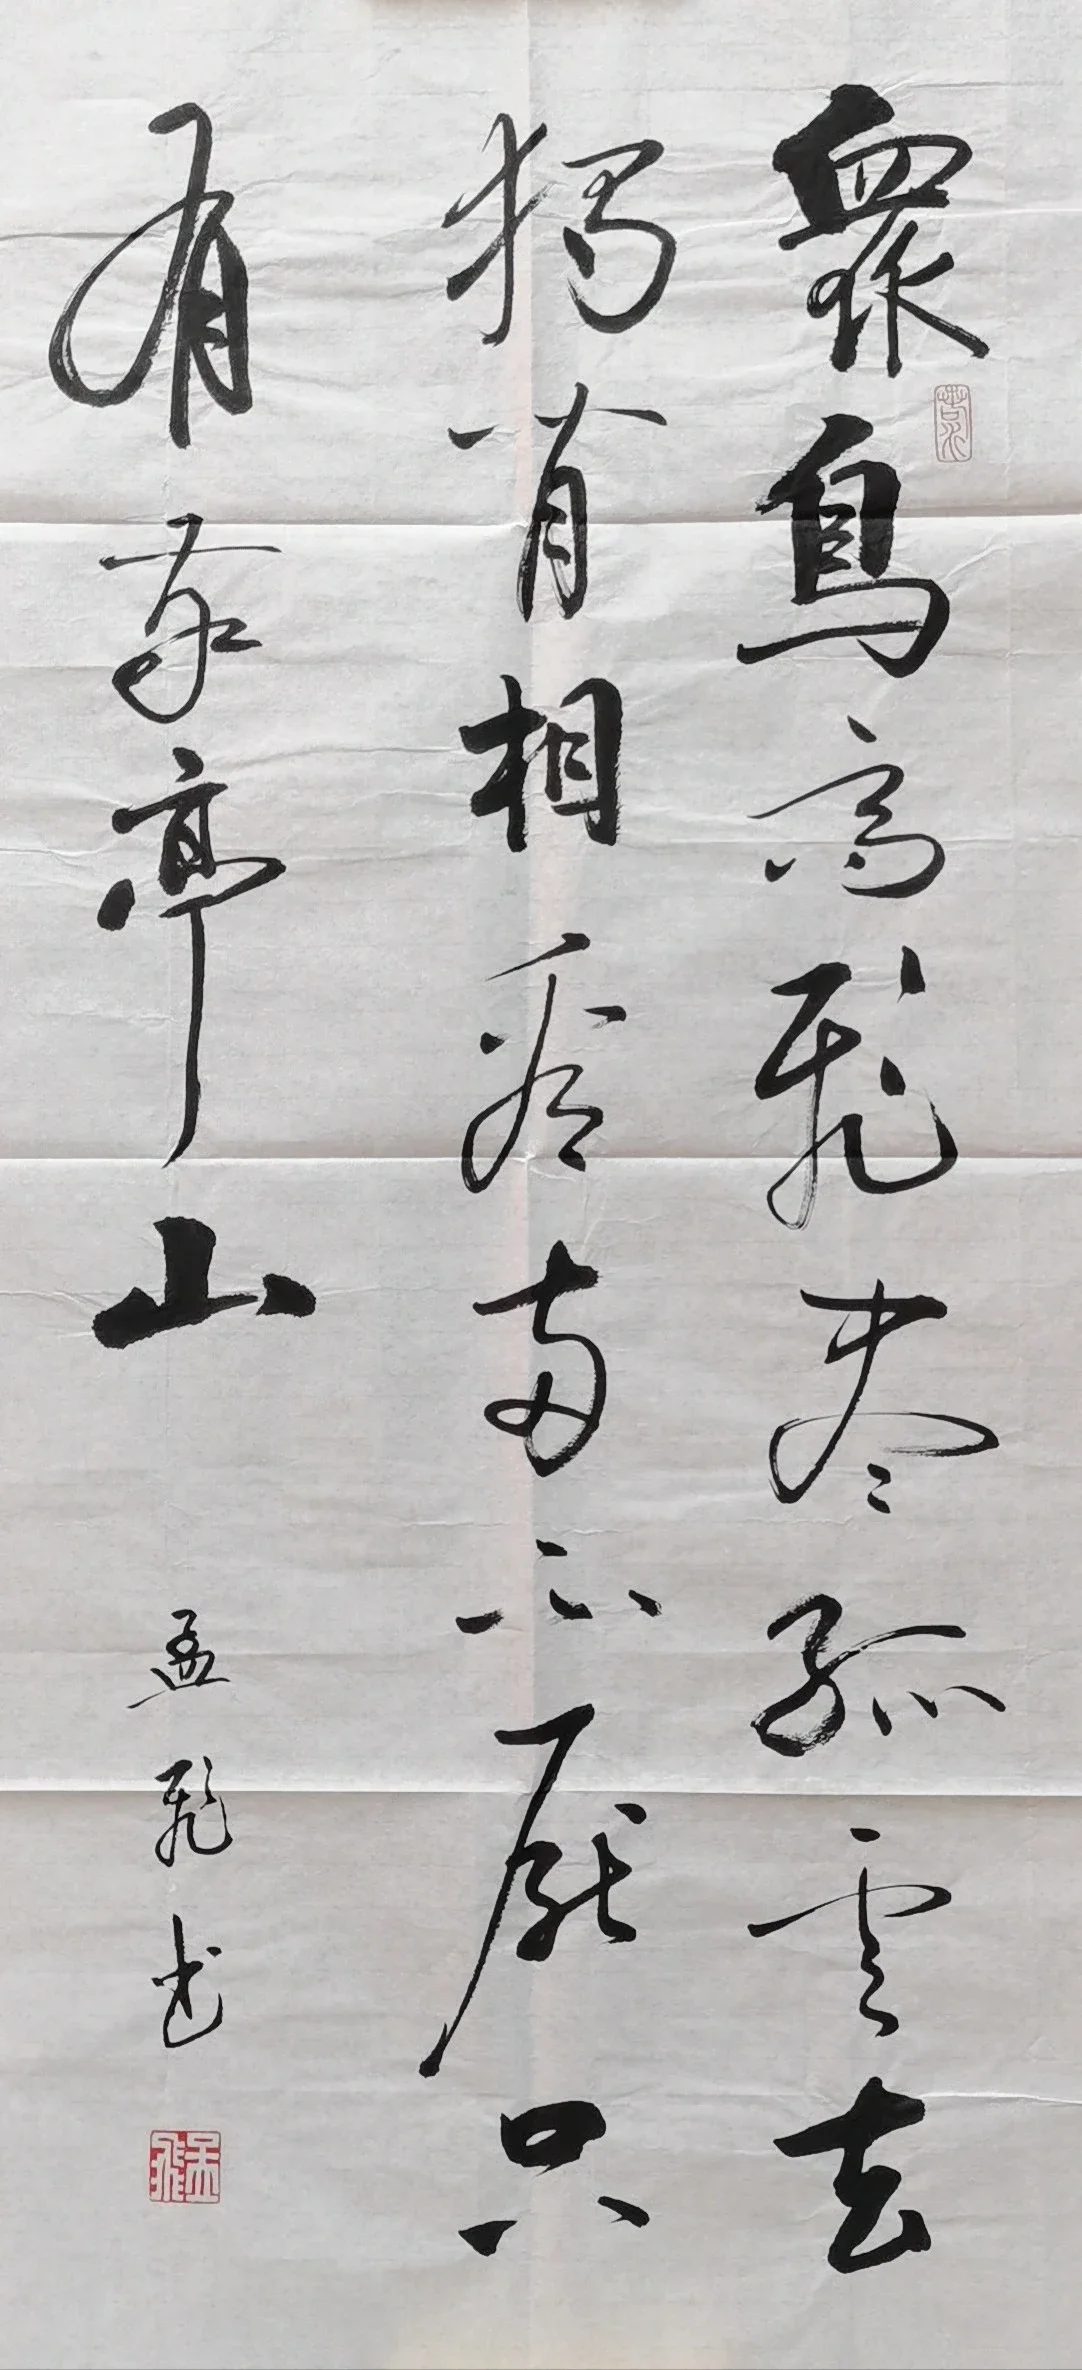 衆鳥高飛盡孤雲去
獨閒相看兩不厭只
有敬亭山
孟飛书
孟飛